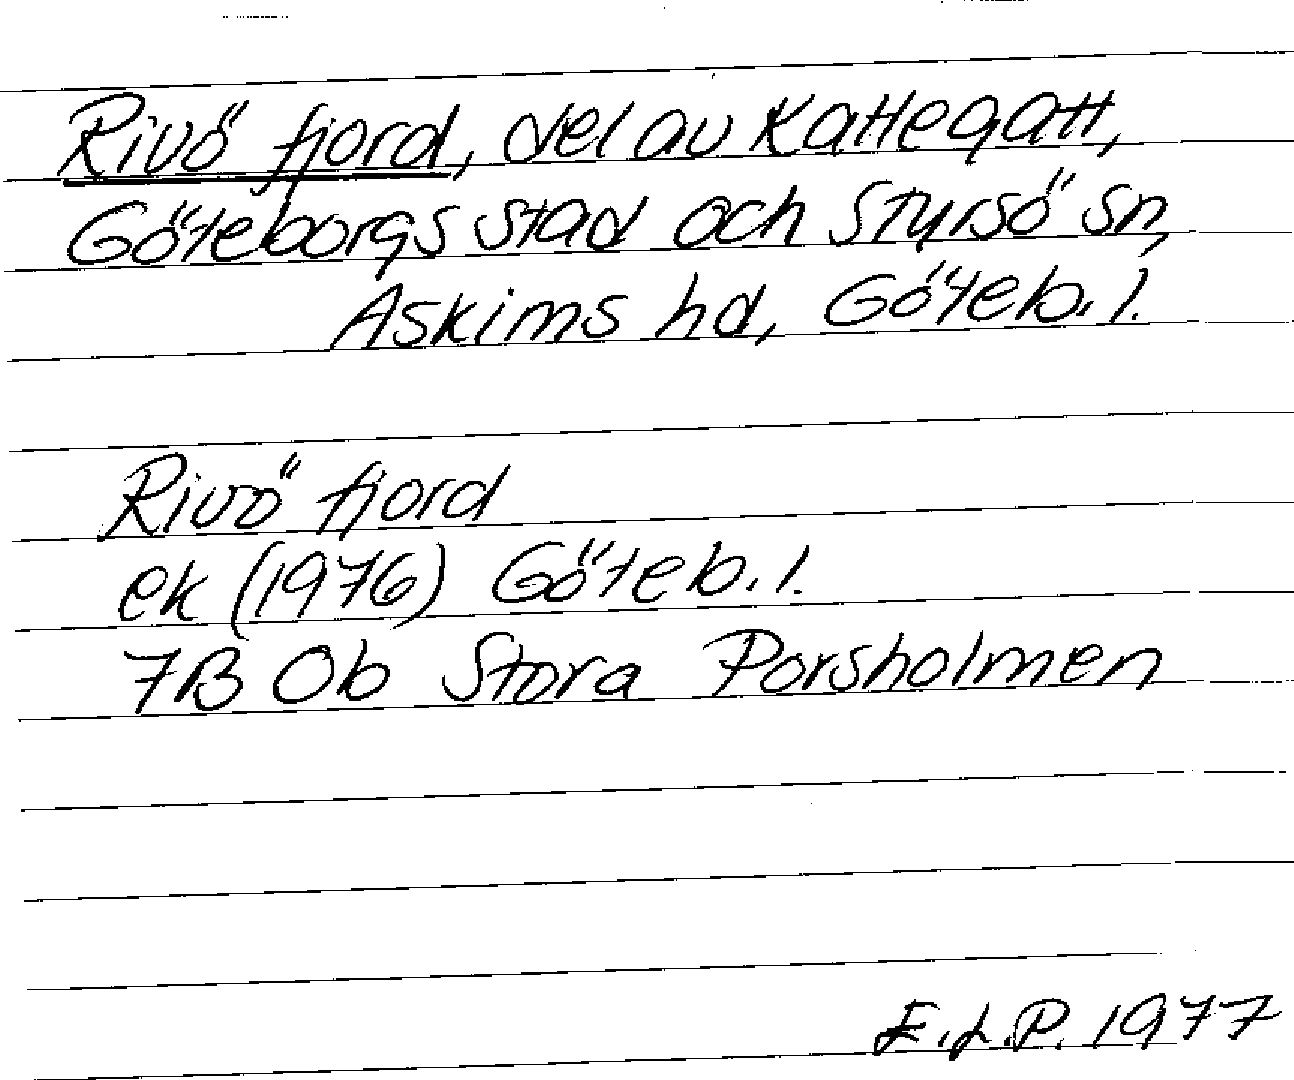 Rivö fjord, del av Kattegatt,
Göteborgs stad och Styrsö sn,
Askims hd, Göteb. l.
Rivö fjord
ek (1976) Göteb. l.
7B 0b Stora Porsholmen
E.L.P. 1977